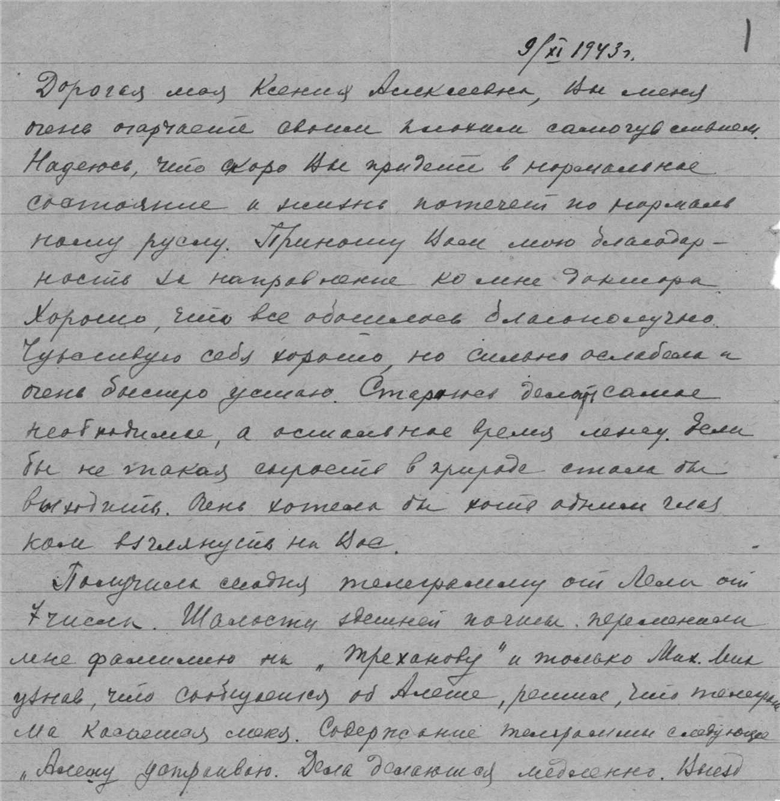 1
9/XI 1943 г.
Дорогая моя Ксения Алексеевна, Вы меня
очень огорчаете своим плохим самочувствием.
Надеюсь, что скоро Вы придете в нормальное
состояние и жизнь потечет по нормаль
ному руслу. Приношу Вам мою благодар-
ность за направление ко мне доктора.
Хорошо, что все обошлось благополучно.
Чувствую себя хорошо, но сильно ослабела и
очень быстро устаю. Стараюсь делать самое
необходимое, а остальное время лежу. Если
бы не такая сырость в природе стала бы
выходить. Очень хотела бы хоть одним глаз
ком взглянуть на Вас.
Получила сегодня телеграмму от Лели от
7 числа. Шалости здешней почты переменили
мне фамилию на „Треханову" и только Мих.
узнав, что сообщается об Алеше, решил, что телеграм
ма касается меня. Содержание телеграммы следующее
„Алешу устраиваю. Дела делаются медленно. Выезд